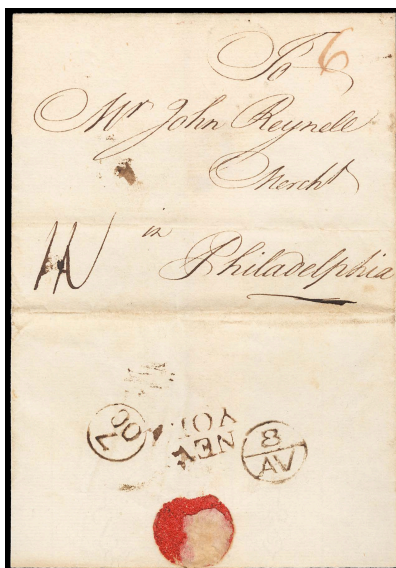 To 6
Mr John Reynell
Mercht
in
Philadelphia
AV
8
NEW
YO